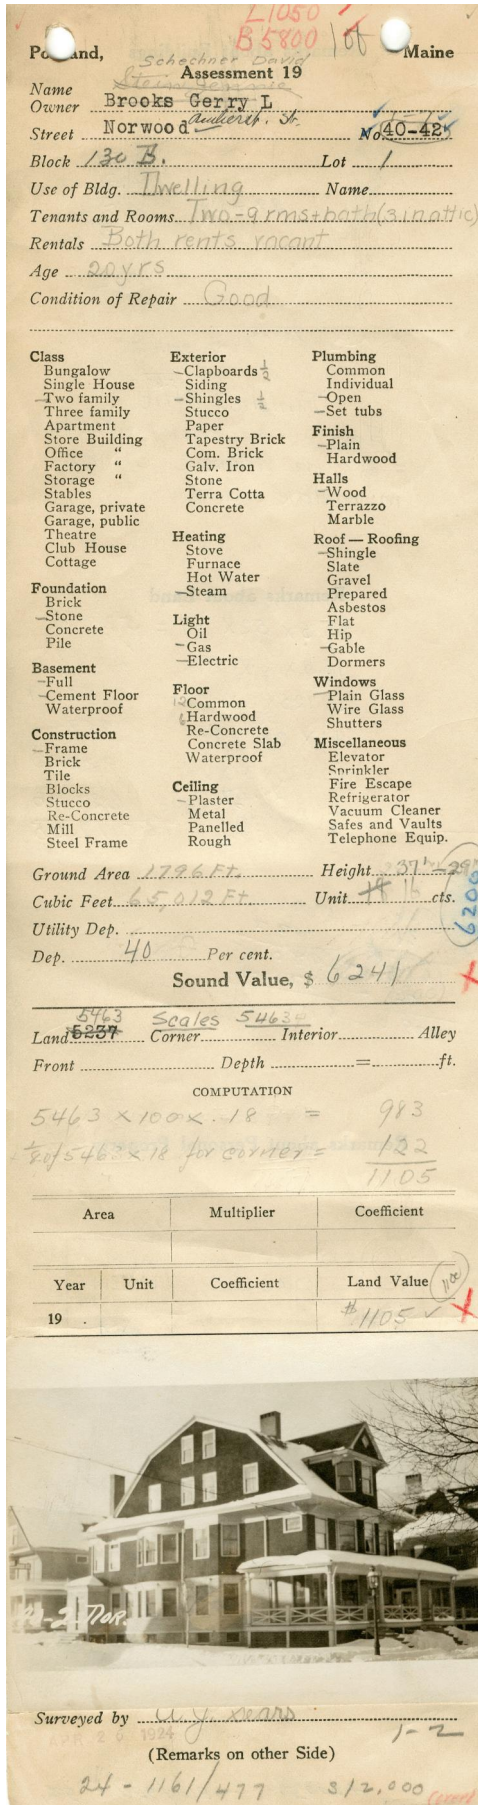 L1050
B5800 1 of
Portland, Maine
Schechner David
Assessment 19
Stein Jennie
Name
Owner Brooks Gerry L
Street Norwood Amherst. St. No. 40-42
Block 130 B. Lot 1
Use of Bldg. Dwelling Name
Tenants and Rooms Two-9 rms+bath(3 in attic)
Rentals Both rents vacant
Age 20 yrs
Condition of Repair Good
Class
Bungalow
Single House
Two family
Three family
Apartment
Store Building
Office "
Factory "
Storage "
Stables
Garage, private
Garage, public
Theatre
Club House
Cottage
Foundation
Brick
Stone
Concrete
Pile
Basement
Full
Cement Floor
Waterproof
Construction
Frame
Brick
Tile
Blocks
Stucco
Re-Concrete
Mill
Steel Frame
Exterior
Clapboards ½
Siding
Shingles ½
Stucco
Paper
Tapestry Brick
Com. Brick
Galv. Iron
Stone
Terra Cotta
Concrete
Heating
Stove
Furnace
Hot Water
Steam
Light
Oil
Gas
Electric
Floor
12 Common
6 Hardwood
Re-Concrete
Concrete Slab
Waterproof
Ceiling
Plaster
Metal
Panelled
Rough
Plumbing
Common
Individual
Open
Set tubs
Finish
Plain
Hardwood
Halls
Wood
Terrazzo
Marble
Roof — Roofing
Shingle
Slate
Gravel
Prepared
Asbestos
Flat
Hip
Gable
Dormers
Windows
Plain Glass
Wire Glass
Shutters
Miscellaneous
Elevator
Sprinkler
Fire Escape
Refrigerator
Vacuum Cleaner
Safes and Vaults
Telephone Equip.
Ground Area 1796 Ft. Height 37
Cubic Feet 65,012 Ft Unit 16 cts.
6200
Utility Dep.
Dep. 40 Per cent.
Sound Value, $ 6241
5463 Scales 5463
Land 5237 Corner Interior Alley
Front Depth = ft.
COMPUTATION
5463 x 100 x .18 = 983
+ 1/8 of 5463 x 18 for corner = 122
1105
Area Multiplier Coefficient
Year Unit Coefficient Land Value
19 . $1105
Surveyed by
APR 26 1924
1-2
(Remarks on other Side)
24 - 1161/477 $12,000